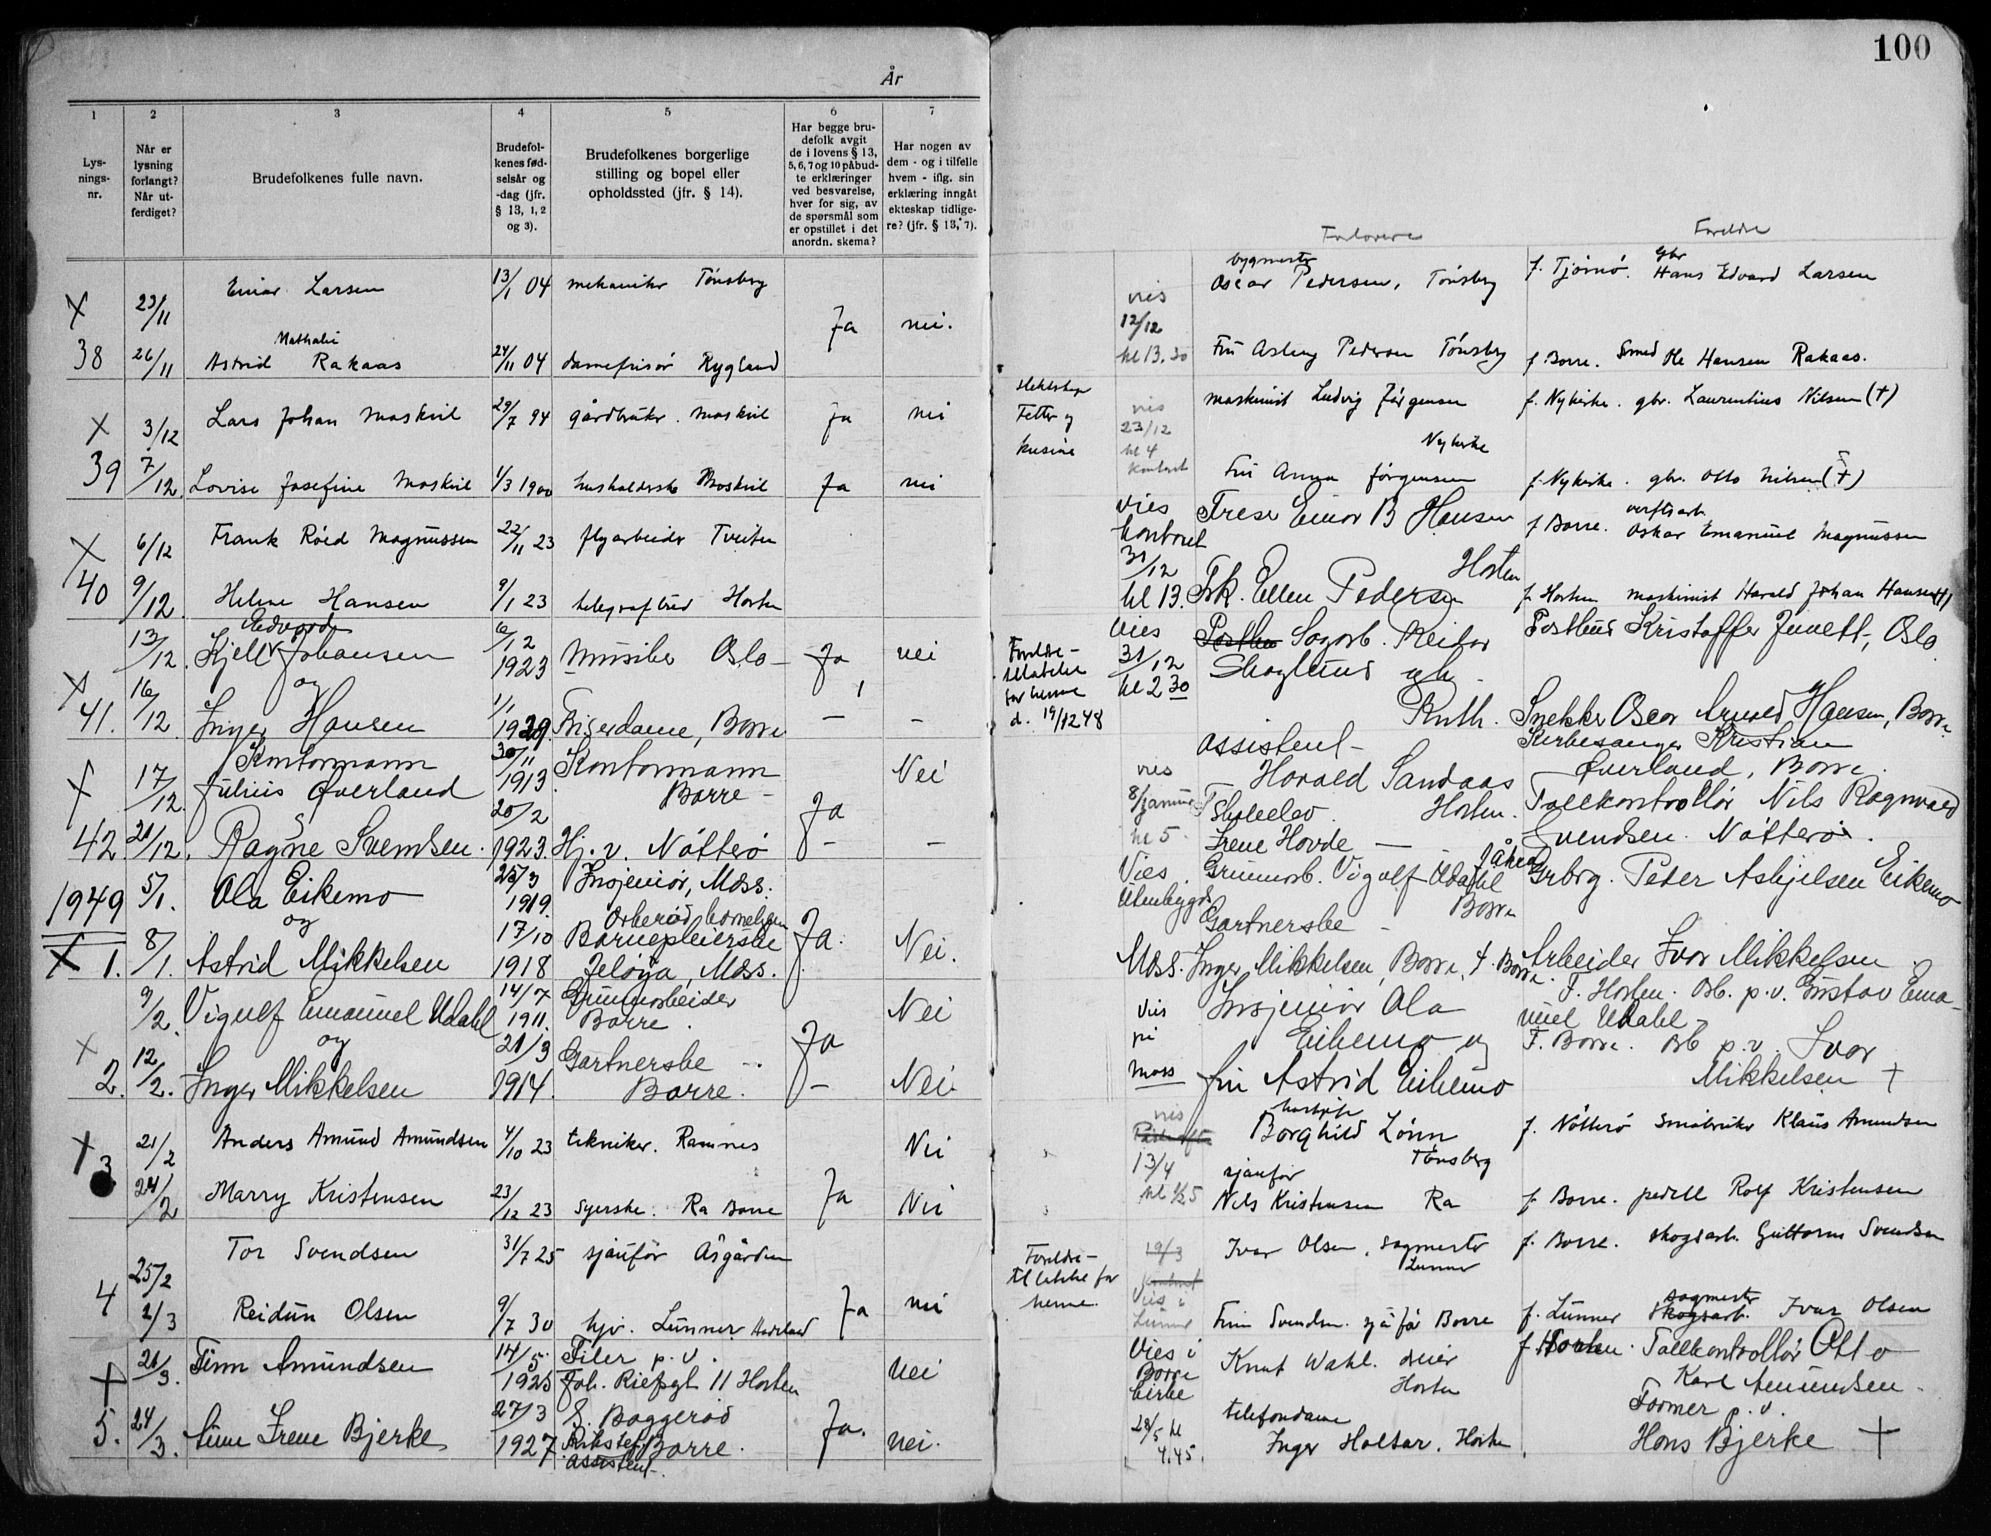 100
År
1
2
3
4
5
6
7
Lys-
nings-
nr.
Når er
lysning
forlangt?
Når ut-
ferdiget?
Brudefolkenes fulle navn.
Brudefol-
kenes fød-
selsår og
-dag (jfr.
§ 13, 1, 2
og 3).
Brudefolkenes borgerlige
stilling og bopel eller
opholdssted (jfr. § 14).
Har begge bru-
defolk avgit
de i lovens § 13,
5, 6, 7 og 10 påbud-
te erklæringer
ved besvarelse,
hver for sig, av
de spørsmål som
er opstillet i det
anordn. skema?
Har nogen av
dem - og i tilfelle
hvem - iflg. sin
erklæring inngåt
ekteskap tidlige-
re? (jfr. § 13, 7).
Forlovere
Foreldre
X 23/11 Einar Larsen 13/1 04 mekaniker Tønsberg Ja nei.
vies 12/12 kl 13.30
bygmester
Oscar Pedersen, Tønsberg f. Tjømø. Gbr Hans Edvard Larsen
Nathalie
38 26/11 Astrid Rakaas 24/11 04 damefrisør Rygland
Fru Aslaug Pedersen Tønsberg f. Borre. Smed Ole Hansen Rakaas.
X 3/12 Lars Johan Moskvil 29/7 94 gårdbruker. Moskvil ja nei
Fetter og
kusine
vies
23/12
kl 4
kontoret
maskinist Ludvig Jørgensen f. Nykirke. gbr. Laurentius Nilsen (+)
Nykirke
39 7/12 Lovise Josefine Moskvil 1/3 1900 husholderske Moskvil ja nei
Fru Anna Jørgensen f. Nykirke. gbr. Otto Nilsen (+)
X 6/12 Frank Röed Magnussen 22/11 23 flyarbeider Tveiten
vies
kontoret
31/12
kl 13.
Freser Einar B Hansen f. Borre. verftsarb.
Oskar Emanuel Magnussen
Horten
40 9/12 Helene Hansen 9/1 23 telegrafbud Horten
Frk. Ellen Pedersen f. Horten maskinist Harald Johan Hansen (+)
Edvard
13/12 Kjell Johansen 6/12 1923 Musiker Oslo - Ja nei
og
Foreldre-
tillatelse
for henne
d. 19/12 48
vies
31/12
kl 2 30
Sagarb. Reidar
Skoglund og
Ruth.
Postbud Kristoffer Junett, Oslo
X 41. 16/12 Inger Hansen 1/1 1929. Friserdame, Borre - -
Snekker Oscar Arnold Hansen, Borre
Kontormann
X 17/12. Julius Øverland 30/11 1913 Kontormann
Borre - Ja Nei
vies
8/januar
kl 5.
assistent
Harald Sandaas
Horten.
Kirkesanger Kristian
Øverland, Borre.
42 21/12. Ragne Svendsen. 20/2 1923. Hj. v. Nøtterø - -
Skoleelev.
Irene Hovde -
Tollkontrollør Nils Ragnvald
Svendsen. Nøtterø.
1949 5/1. Ola Eikemo 25/3 1919. Insjeniør, Moss.
og
Vies
utenbygds
Moss.
Grunnarb. Vigulf Udahl
Borre
Grbrg. Peder Asbjelsen Eikemo
X 1. 8/1. Astrid Mikkelsen 17/10 1918 Barnepleierske
Jeløya, Moss. Ja. Nei.
Gartnerske -
Inger Mikkelsen, Borre, f. Borre. Arbeider Ivar Mikkelsen.
9/2. Vigulf Emanuel Udahl 14/7 1911. Grunnarbeider
Borre. Ja Nei
og
vies
på
Moss
Insjeniør Ola
Eikemo og
F. Horten. Arb. p.v. Gustav Ema-
nuel Udahl -
X 2. 12/2. Inger Mikkelsen 21/3 1914. Gartnerske -
Borre. - Nei
fru Astrid Eikemo
F. Borre. Arb p.v. Ivar
Mikkelsen +
X 3 21/2 Anders Amund Amundsen 4/10 23 tekniker. Ramnes Nei
vies
13/4
kl 1/2 5
Borghild Lönn
Tønsberg
f. Nøtterø småbruker Klaus Amundsen
24/2 Marry Kristensen 23/12 23 syerske. Ra Borre Ja Nei
sjåufør
Nils Kristensen Ra f. Borre. pedell Rolf Kristensen
25/2 Tor Svendsen 31/7 25 sjåufør Åsgården
Foreldre-
tillatelse for
henne.
19/3
kontoret
Vies i
Lunner
Ivar Olsen, sagmester
Lunner
f. Borre. skogsarb. Guttorm Svendsen
4 2/3 Reidun Olsen 9/7 30 hjv. Lunner Hadeland ja nei
Finn Svendsen. sjåfør Borre f. Lunner sagmester
skogsarb. Ivar Olsen
X 21/3. Finn Amundsen 14/5. 1925 Filer p.v.
Joh. Riefsgt 11 Horten nei
Vies i
Borre
kirke
28/5 kl
4.45.
Knut Wahl. dreier
Horten
f Horten. Tollkontrollør Otto
Karl Amundsen.
5. 24/3. Irene Bjerke 27/3 1927. S. Baggerød
Borre.
Assistent. Ja. nei.
telefondame
Inger Holtar. Horten
Former p.v.
Hans Bjerke +